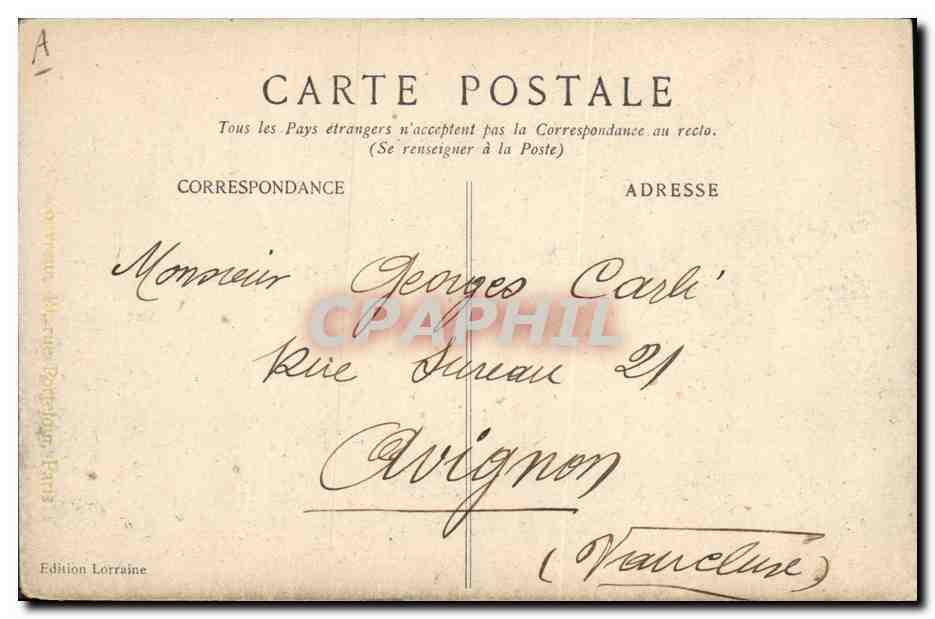 A
CARTE POSTALE
Tous les Pays étrangers n'acceptent pas la Correspondance au recto.
(Se renseigner à la Poste)
CORRESPONDANCE
ADRESSE
Monsieur Georges Carli
CPAPHIL
Rue Sureau 21
Avignon
(Vaucluse)
Edition Lorraine
rue Paris